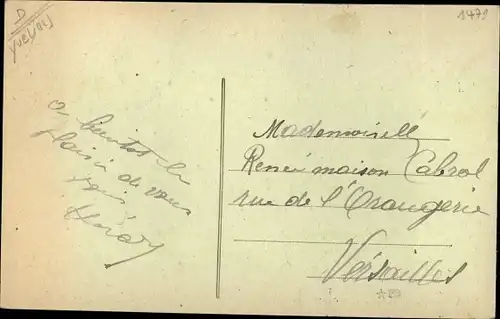 D
Yvelines
1479
a bientot le
plaisir de vous
voir
Mademoiselle
Renée maison Cabrol
rue de l'Orangerie
Versailles